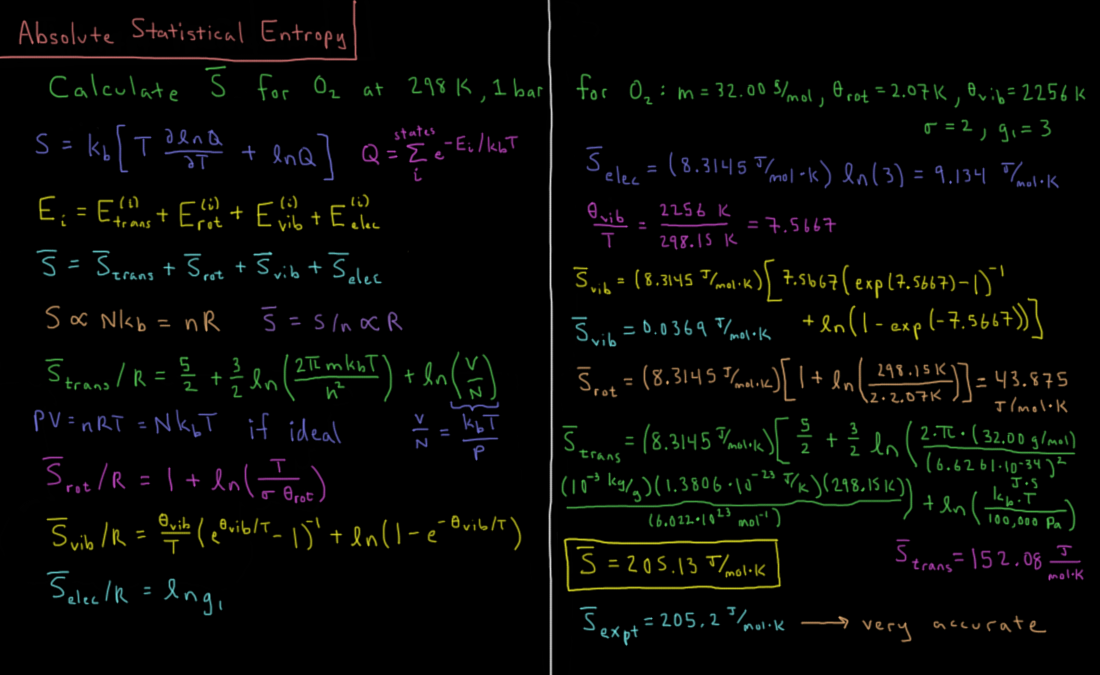 Absolute Statistical Entropy
Calculate S̅ for O₂ at 298 K, 1 bar
S = k_b [ T ∂lnQ/∂T + lnQ ]   Q = Σ_i^states e^(-E_i/k_bT)
E_i = E_trans^(i) + E_rot^(i) + E_vib^(i) + E_elec^(i)
S̅ = S̅_trans + S̅_rot + S̅_vib + S̅_elec
S ∝ Nk_b = nR   S̅ = S/n ∝ R
S̅_trans/R = 5/2 + 3/2 ln(2πmk_bT/h²) + ln(V/N)
PV = nRT = Nk_bT if ideal   V/N = k_bT/P
S̅_rot/R = 1 + ln(T/(σ θ_rot))
S̅_vib/R = θ_vib/T (e^(θ_vib/T) - 1)⁻¹ + ln(1 - e^(-θ_vib/T))
S̅_elec/R = ln g₁
for O₂ : m = 32.00 g/mol, θ_rot = 2.07 K, θ_vib = 2256 K
σ = 2, g₁ = 3
S̅_elec = (8.3145 J/mol·K) ln(3) = 9.134 J/mol·K
θ_vib/T = 2256 K/298.15 K = 7.5667
S̅_vib = (8.3145 J/mol·K)[7.5667(exp(7.5667) - 1)⁻¹
+ ln(1 - exp(-7.5667))]
S̅_vib = 0.0369 J/mol·K
S̅_rot = (8.3145 J/mol·K)[1 + ln(298.15 K/(2·2.07K))] = 43.875
J/mol·K
S̅_trans = (8.3145 J/mol·K)[5/2 + 3/2 ln(2·π·(32.00 g/mol)/(6.6261·10⁻³⁴)²
J·s
(10⁻³ kg/g)(1.3806·10⁻²³ J/K)(298.15K)/(6.022·10²³ mol⁻¹)) + ln(k_b·T/100,000 Pa)
S̅_trans = 152.08 J/mol·K
S̅ = 205.13 J/mol·K
S̅_expt = 205.2 J/mol·K ⟶ very accurate